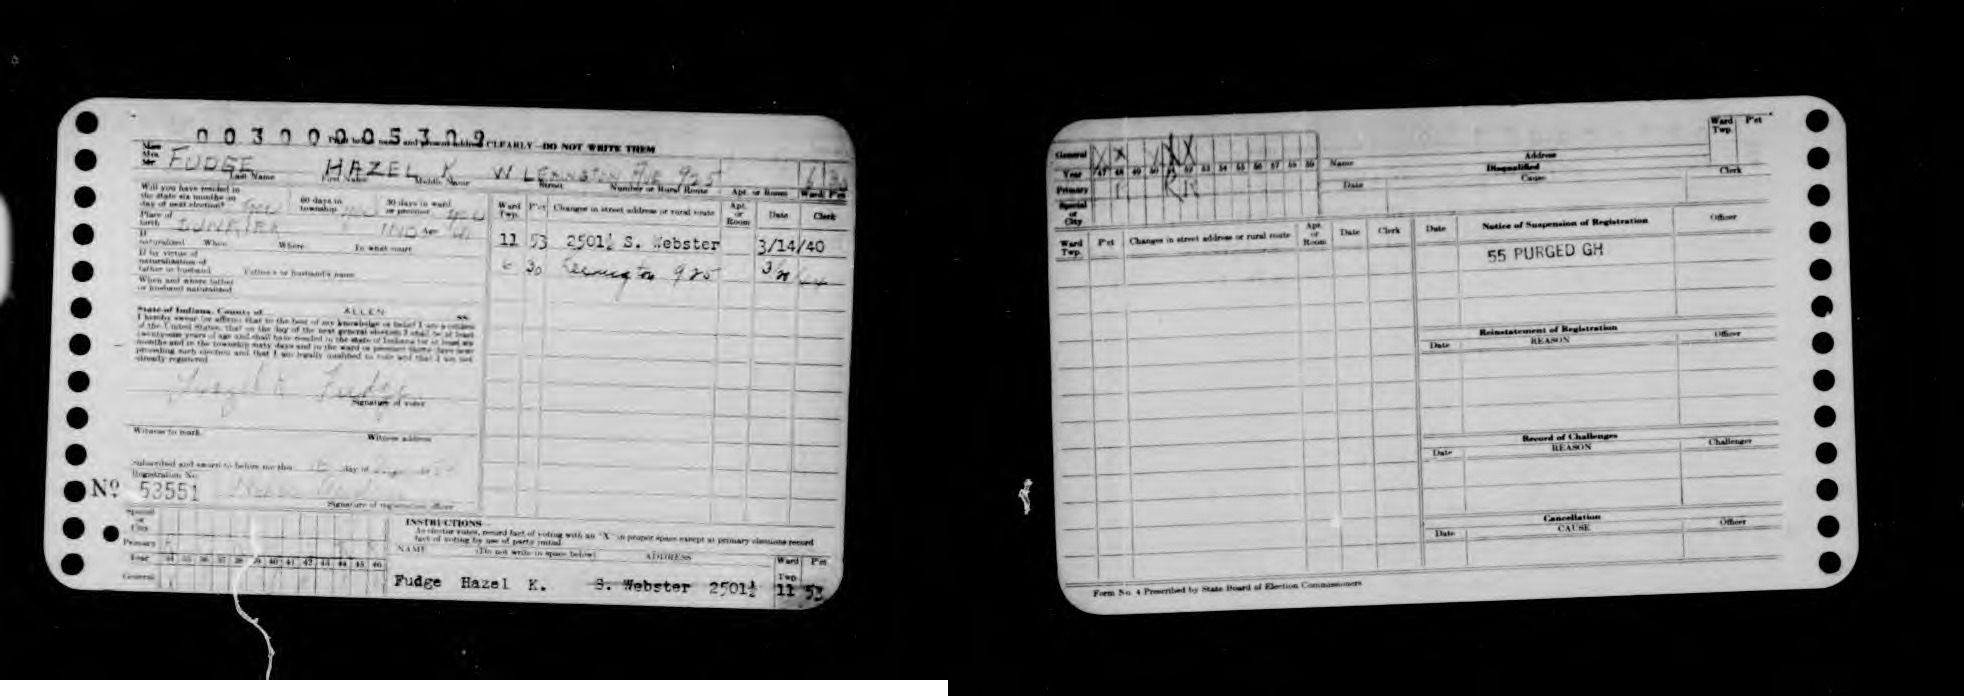 00300005309
CLEARLY—DO NOT WRITE THEM
FUDGE HAZEL K W LEXINGTON AVE 925 6 30
Last Name First Name Middle Name Street Number or Rural Route Apt. or Room Ward P'ct
Will you have resided in
the state six months on 60 days in 30 days in ward
day of next election? township or precinct
Place of
birth DUNKIRK IND Age
If
naturalized When Where In what court
If by virtue of
naturalization of
father or husband Father's or husband's name
When and where father
or husband naturalized
Ward Twp. P'ct Changes in street address or rural route Apt. or Room Date Clerk
11 53 2501½ S. Webster 3/14/40
6 30 Lexington 925
State of Indiana, County of ALLEN SS.
I hereby swear (or affirm) that to the best of my knowledge or belief I am a citizen
of the United States, that on the day of the next general election I shall be at least
twenty-one years of age and shall have resided in the state of Indiana for at least six
months and in the township sixty days and in the ward or precinct thirty days next
preceding such election and that I am legally qualified to vote and that I am not
already registered
Hazel K Fudge
Signature of voter
Witness to mark Witness address
Subscribed and sworn to before me this day of
Registration No.
Nº 53551
Signature of registration officer
Special
or
City
Primary
Year 34 35 36 37 38 39 40 41 42 43 44 45 46
General
INSTRUCTIONS
As elector votes, record fact of voting with an "X" in proper space except at primary elections record
fact of voting by use of party initial
NAME (Do not write in space below) ADDRESS Ward Twp. P'ct
Fudge Hazel K. S. Webster 2501½ 11 53
General X X X X
Year 47 48 49 50 51 52 53 54 55 56 57 58 59
Primary R R
Special
or
City
Name Address Ward Twp. P'ct
Disqualified
Date Cause Clerk
Ward Twp. P'ct Changes in street address or rural route Apt. or Room Date Clerk
Date Notice of Suspension of Registration Officer
55 PURGED GH
Reinstatement of Registration
Date REASON Officer
Record of Challenges
Date REASON Challenger
Cancellation
Date CAUSE Officer
Form No. 4 Prescribed by State Board of Election Commissioners